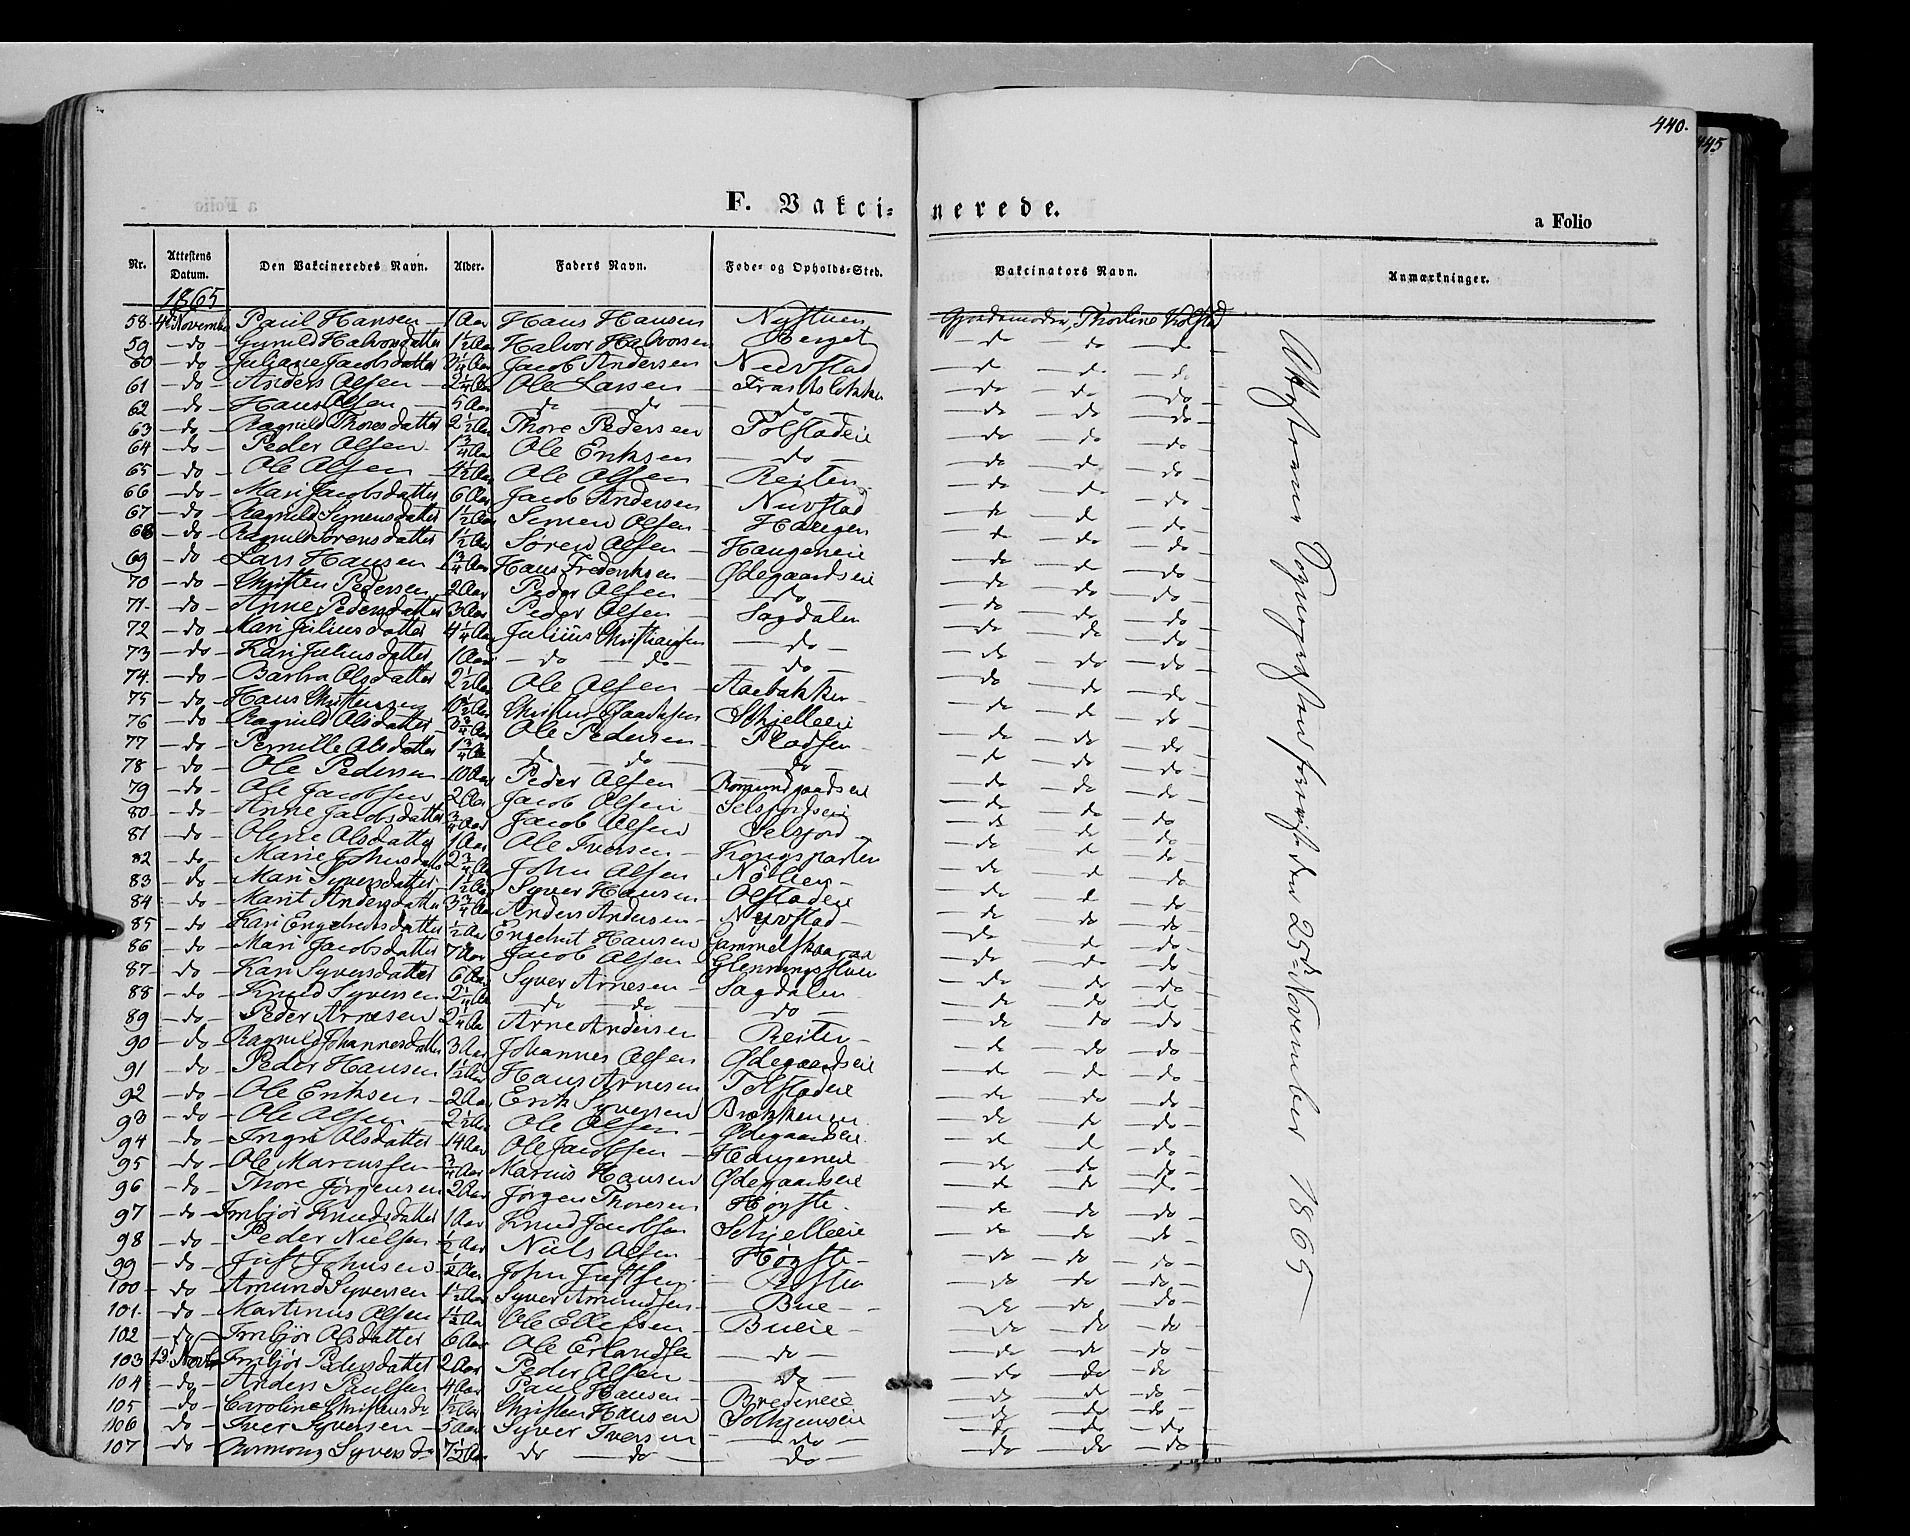 440.
445
F. Vakci=nerede.
a Folio
Nr. Attestens Datum. Den Vakcineredes Navn. Alder. Faders Navn. Føde- og Opholds-Sted. Vakcinators Navn. Anmærkninger.
1865
58 4de Novembr Paul Hansen 1 Aar Hans Hansen Nystuen Gjordemoder, Thorine Kolstad
59 do Gunild Halvorsdatter 1½ Aar Halvor Halvorsen Berget do do do
60 do Juliane Jacobsdatter 3¼ Aar Jacob Andersen Nurstad do do do
61 do Anders Olsen 2¼ Aar Ole Larsen do do do
62 do Hans Olsen 5 Aar do do do do do do
63 do Ragnild Thoresdatter 2½ Aar Thore Pedersen Tolstadeie do do do
64 do Peder Olsen 1¾ Aar Ole Eriksen do do do do
65 do Ole Olsen 4½ Aar Ole Olsen Reiten do do do
66 do Mari Jacobsdatter 6 Aar Jacob Andersen Nurstad do do do
67 do Ragnild Simensdatter 1½ Aar Simen Olsen Haugen do do do
68 do Ragnild Sørensdatter 1½ Aar Søren Olsen Haugeneie do do do
69 do Lars Hansen ¾ Aar Hans Frederiksen Ødegaardseie do do do
70 do Christen Pedersen 2 Aar Peder Olsen do do do do
71 do Anne Pedersdatter 3 Aar Peder Olsen Sagdalen do do do
72 do Mari Juliusdatter 4¼ Aar Julius Christiansen do do do do
73 do Kari Juliusdatter 1 Aar do do do do do do
74 do Barbra Olsdatter 2½ Aar Ole Olsen Aaebakken do do do
75 do Hans Christensen Aar Christen Isaachsen Schjelleeie do do do
76 do Ragnild Olsdatter 3¾ Aar Ole Pedersen Pladsen do do do
77 do Pernille Olsdatter 1¾ Aar do do do do do do
78 do Ole Pedersen 10 Aar Peder Olsen Romundgaardseie do do do
79 do Ole Jacobsen 2 Aar Jacob Olsen Selsjordseie do do do
80 do Anne Jacobsdatter ¾ Aar Jacob Olsen Selsjord do do do
81 do Olene Olsdatter 1 Aar Ole Iversen Kongsparten do do do
82 do Marie Johnsdatter 2¾ Aar John Olsen do do do
83 do Mari Syversdatter 1½ Aar Syver Hansen Olstadeie do do do
84 do Marit Andersdatter 3¾ Aar Anders Andersen Nyvstad do do do
85 do Kari Engebretsdatter ½ Aar Engebret Hansen do do do
86 do Mari Jacobsdatter 7 Aar Jacob Olsen do do do
87 do Kari Syversdatter 6 Aar Syver Arnesen Sagdalen do do do
88 do Knud Syversen 2¼ Aar do do do do do do
89 do Peder Arnesen 2¼ Aar Arne Andersen Reiten do do do
90 do Ragnild Johannesdatter 3 Aar Johannes Olsen Ødegaardseie do do do
91 do Peder Hansen 1½ Aar Hans Arnesen Tolstadeie do do do
92 do Ole Eriksen 2 Aar Erik Syversen do do do
93 do Ole Olsen 2½ Aar Ole Olsen Ødegaardseie do do do
94 do Ingri Olsdatter 14 Aar Ole Jacobsen Haugeneie do do do
95 do Ole Marcussen ¾ Aar Marcus Hansen Ødegaardseie do do do
96 do Thore Jørgensen 2 Aar Jørgen Thoresen Høyste do do do
97 do Imbjør Knudsdatter 1 Aar Knud Jacobsen Schjelleeie do do do
98 do Peder Nielsen ½ Aar Niels Olsen Høyste do do do
99 do Just Johnsen ½ Aar John Justsen do do do
100 do Amund Syversen 1½ Aar Syver Amundsen Bue do do do
101 do Martinus Olsen 1½ Aar Ole Ellefsen Bueie do do do
102 do Imbjør Olsdatter 6 Aar Ole Erlandsen do do do do
103 13 Novbr Imbjør Pedersdatter 2 Aar Peder Olsen do do do do
104 do Anders Paulsen 4 Aar Paul Hansen Bredeneie do do do
105 do Caroline Christensdr 1½ Aar Christen Hansen Solhjemseie do do do
106 do Iver Syversen 5 Aar Syver Iversen do do do do
107 do Syversdr 7½ Aar do do do do do do
25de November 1865